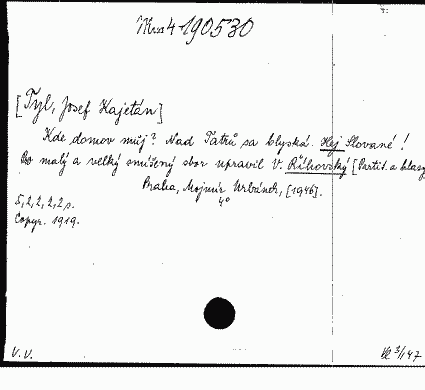 Mus 4-190530
[Tyl, Josef Kajetán]
Kde domov můj? Nad Tatrů sa blyská. Hej Slované!
Pro malý a velký smíšený sbor upravil V. Říhovský [Partit. a hlasy
Praha, Mojmír Urbánek, [1946].
4°
5, 2, 2, 2, 2 s.
Copyr. 1919.
V. V.